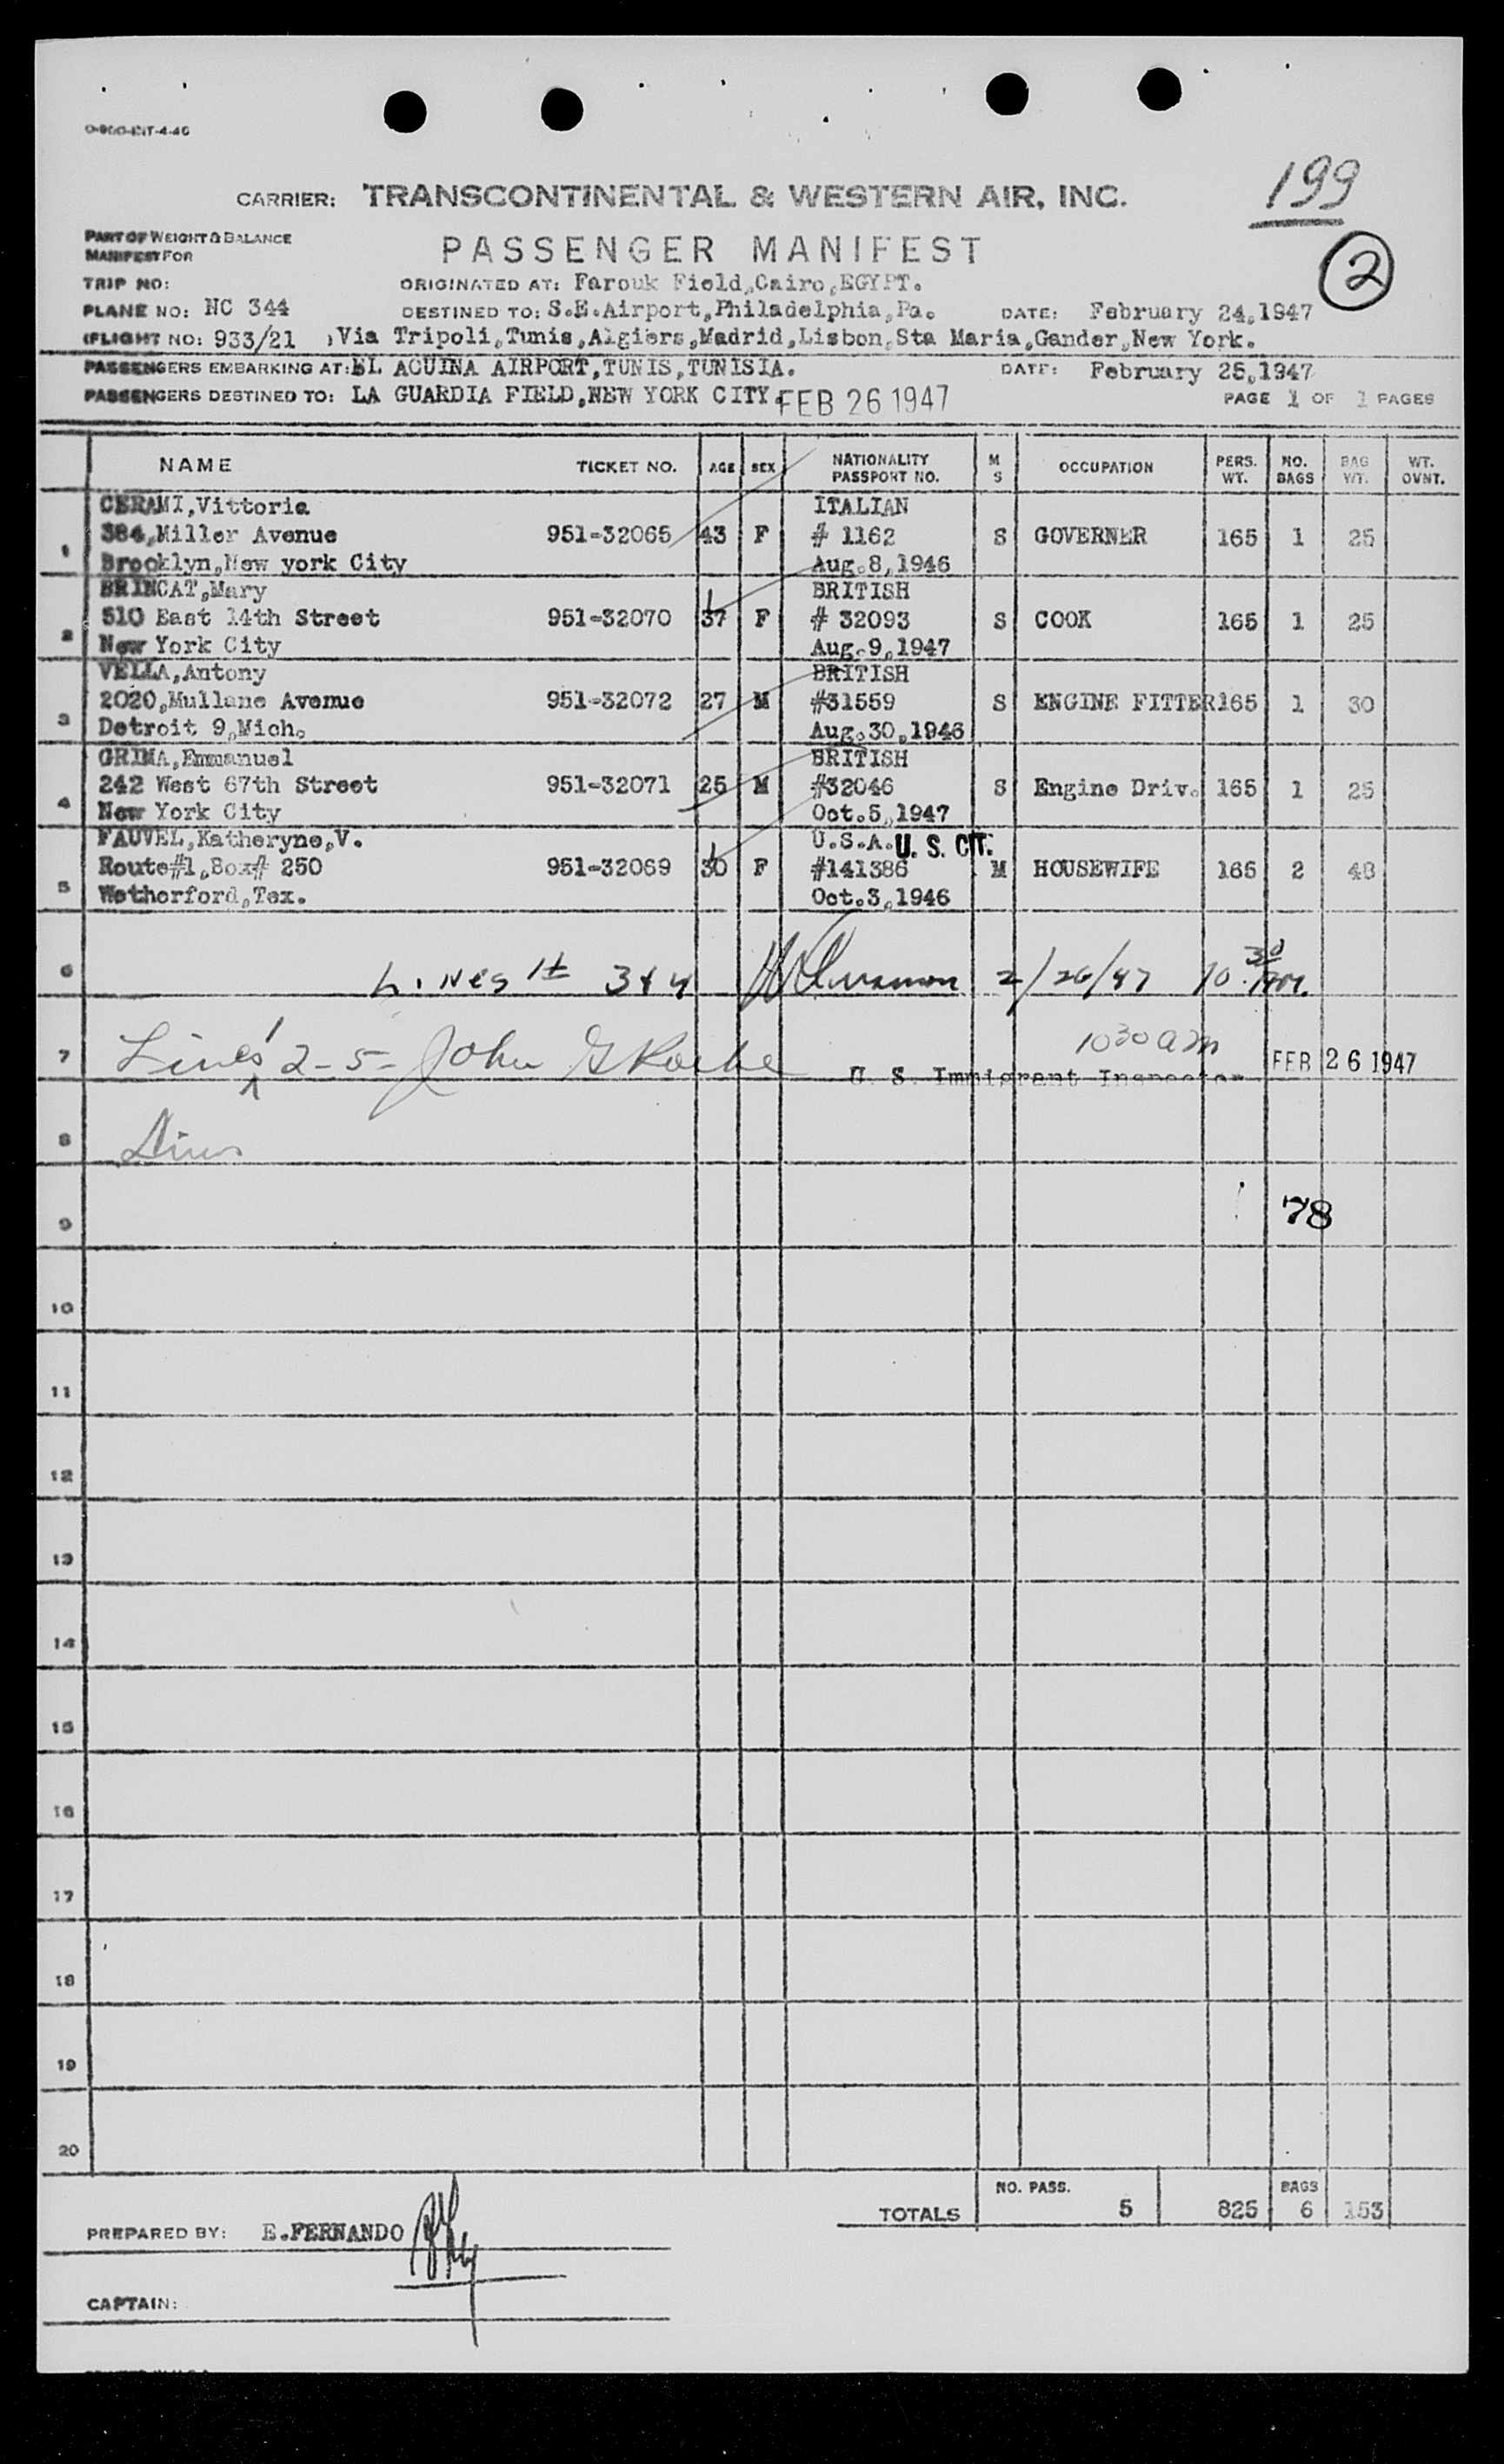 O-900-INT-4-46
199
CARRIER: TRANSCONTINENTAL & WESTERN AIR, INC.
PART OF WEIGHT & BALANCE
MANIFEST FOR
PASSENGER MANIFEST
2
TRIP NO: ORIGINATED AT: Farouk Field,Cairo,EGYPT.
PLANE NO: NC 344 DESTINED TO: S.E.Airport,Philadelphia,Pa. DATE: February 24,1947
(FLIGHT NO: 933/21 )Via Tripoli,Tunis,Algiers,Madrid,Lisbon,Sta Maria,Gander,New York.
PASSENGERS EMBARKING AT: EL AOUINA AIRPORT,TUNIS,TUNISIA. DATE: February 25,1947
PASSENGERS DESTINED TO: LA GUARDIA FIELD,NEW YORK CITY. FEB 26 1947 PAGE 1 OF 1 PAGES
NAME TICKET NO. AGE SEX NATIONALITY PASSPORT NO. M S OCCUPATION PERS. WT. NO. BAGS BAG WT. WT. OVNT.
CERAMI,Vittoria ITALIAN
1 384,Miller Avenue 951-32065 43 F # 1162 S GOVERNER 165 1 25
Brooklyn,New york City Aug.8,1946
BRINCAT,Mary BRITISH
2 510 East 14th Street 951-32070 37 F # 32093 S COOK 165 1 25
New York City Aug.9,1947
VELLA,Antony BRITISH
3 2020,Mullane Avenue 951-32072 27 M #31559 S ENGINE FITTER 165 1 30
Detroit 9,Mich. Aug.30,1946
GRIMA,Emmanuel BRITISH
4 242 West 67th Street 951-32071 25 M #32046 S Engine Driv. 165 1 25
New York City Oct.5,1947
FAUVEL,Katheryne,V. U.S.A. U. S. CIT.
5 Route#1,Box# 250 951-32069 30 F #141386 M HOUSEWIFE 165 2 48
Wetherford,Tex. Oct.3,1946
6 3 & 4 2/26/47 10 30
7 Lines 2-5- John G 1030 am FEB 26 1947
U. S. Immigrant Inspector
8
9 78
10
11
12
13
14
15
16
17
18
19
20
NO. PASS. BAGS
TOTALS 5 825 6 153
PREPARED BY: E.FERNANDO
CAPTAIN: